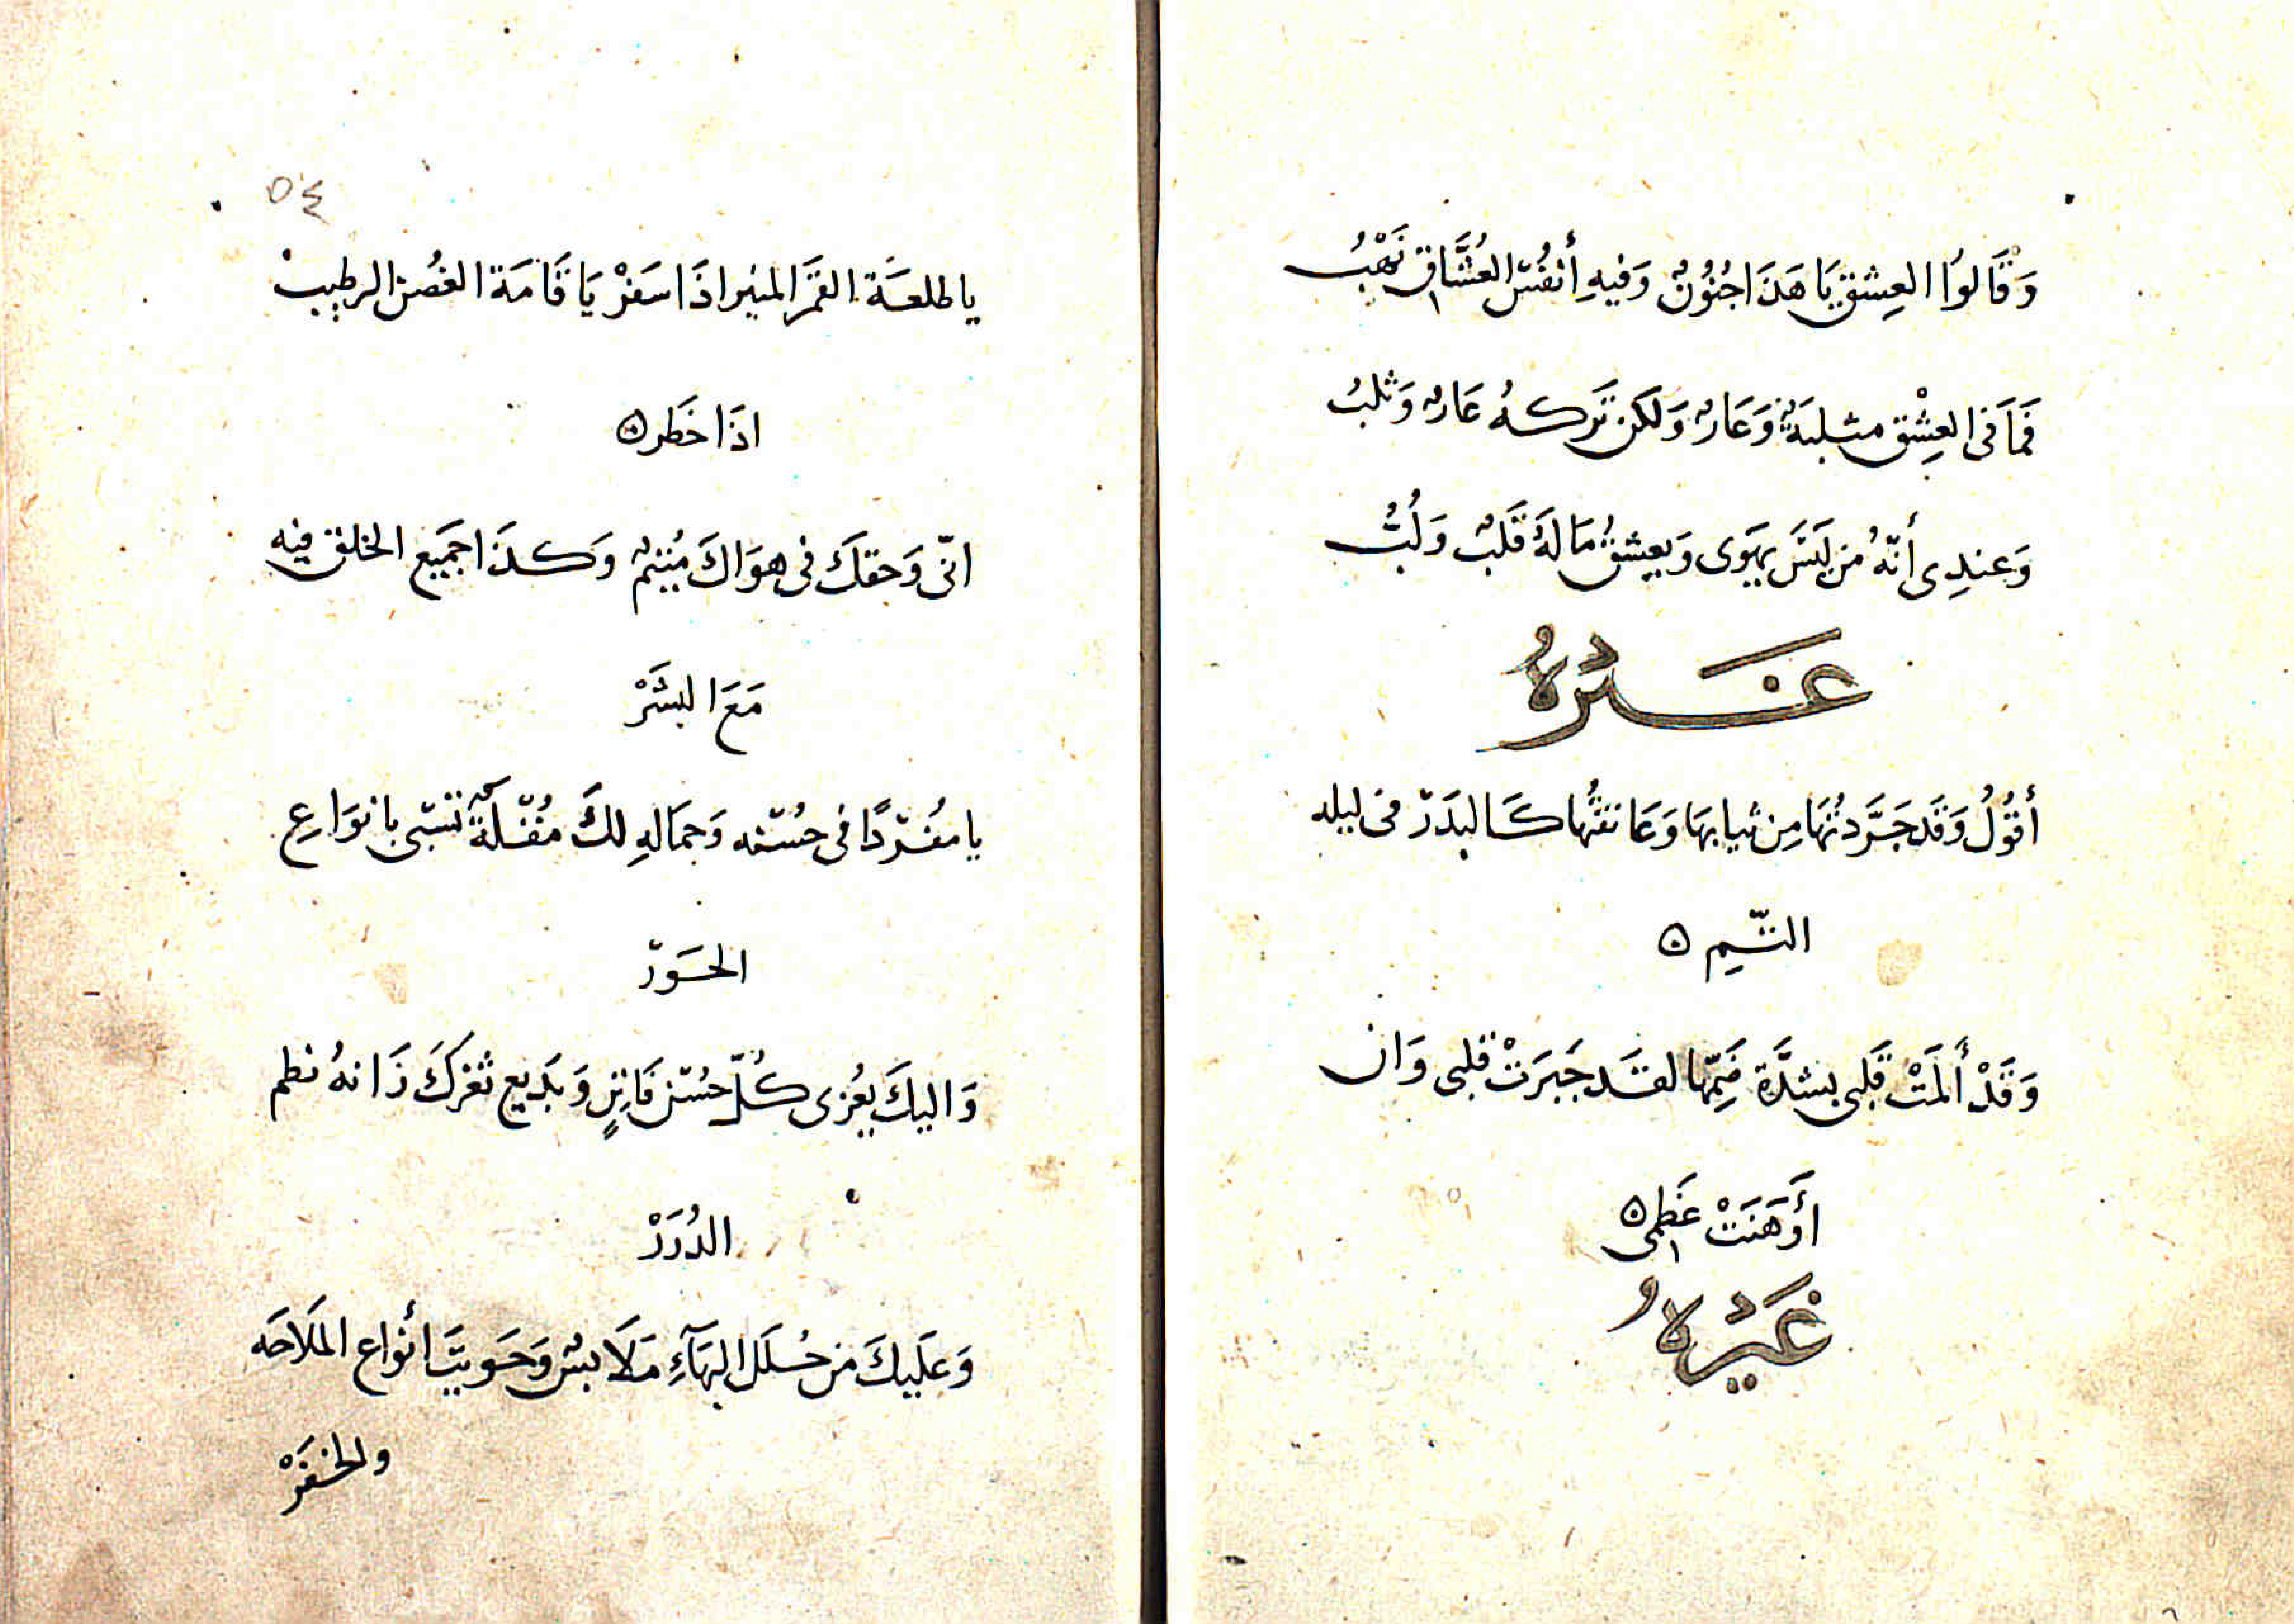 وَقَالوُا العِشق يَا هَذَا جُنُونٌ وَفيهِ أنفُسُ العُشَّاق نَهْبُ
فَمَا فى العِشْق مثلبَةٌ وَعَارٌ وَلكن تَركهُ عَارٌ وَثلبُ
وَعندِى أنّهُ مَن لَيسَ يهَوى وَيعِشقُ مَا لهُ قَلبٌ وَلُبُّ
غَيْرُهُ
أقوُلُ وَقَد جَرَّدتُهَا مِن ثيابهَا وَعَانقتُها كَالبَدَر فى ليله
التّمِ ه
وَقَدْ ألمَتْ قَلبى بشدَّة ضَمِّها لقَد جَبَرَتْ قلبى وَان
أوَهَنَتْ عَظمى ه
غَيْرُهُ
٥٤
يا طلعَة القمَر المنير اذَا سَفَرْ يَا قَامَة الغصُن الرطيب
اذَا خَطر ه
انّى وَحقكَ فى هوَاكَ مُتيمٌ وَكذَا جمَيع الخلق فيه
مَعَ البشَرْ
يا مفُردًا فى حُسنه وَجمَالهِ لكَ مُقلَةٌ تسَبى بانوَاعِ
الحَوَرْ
وَاليكَ يعُزى كُلّ حُسْن فَاتنٍ وَبدَيع ثغرَكَ زَانهُ نظم
الدُرَرْ
وَعلَيكَ من حُلَل البهَآءِ مَلَابسٌ وَحَويتَ أنواع الملَاحَه
والخفَرْ